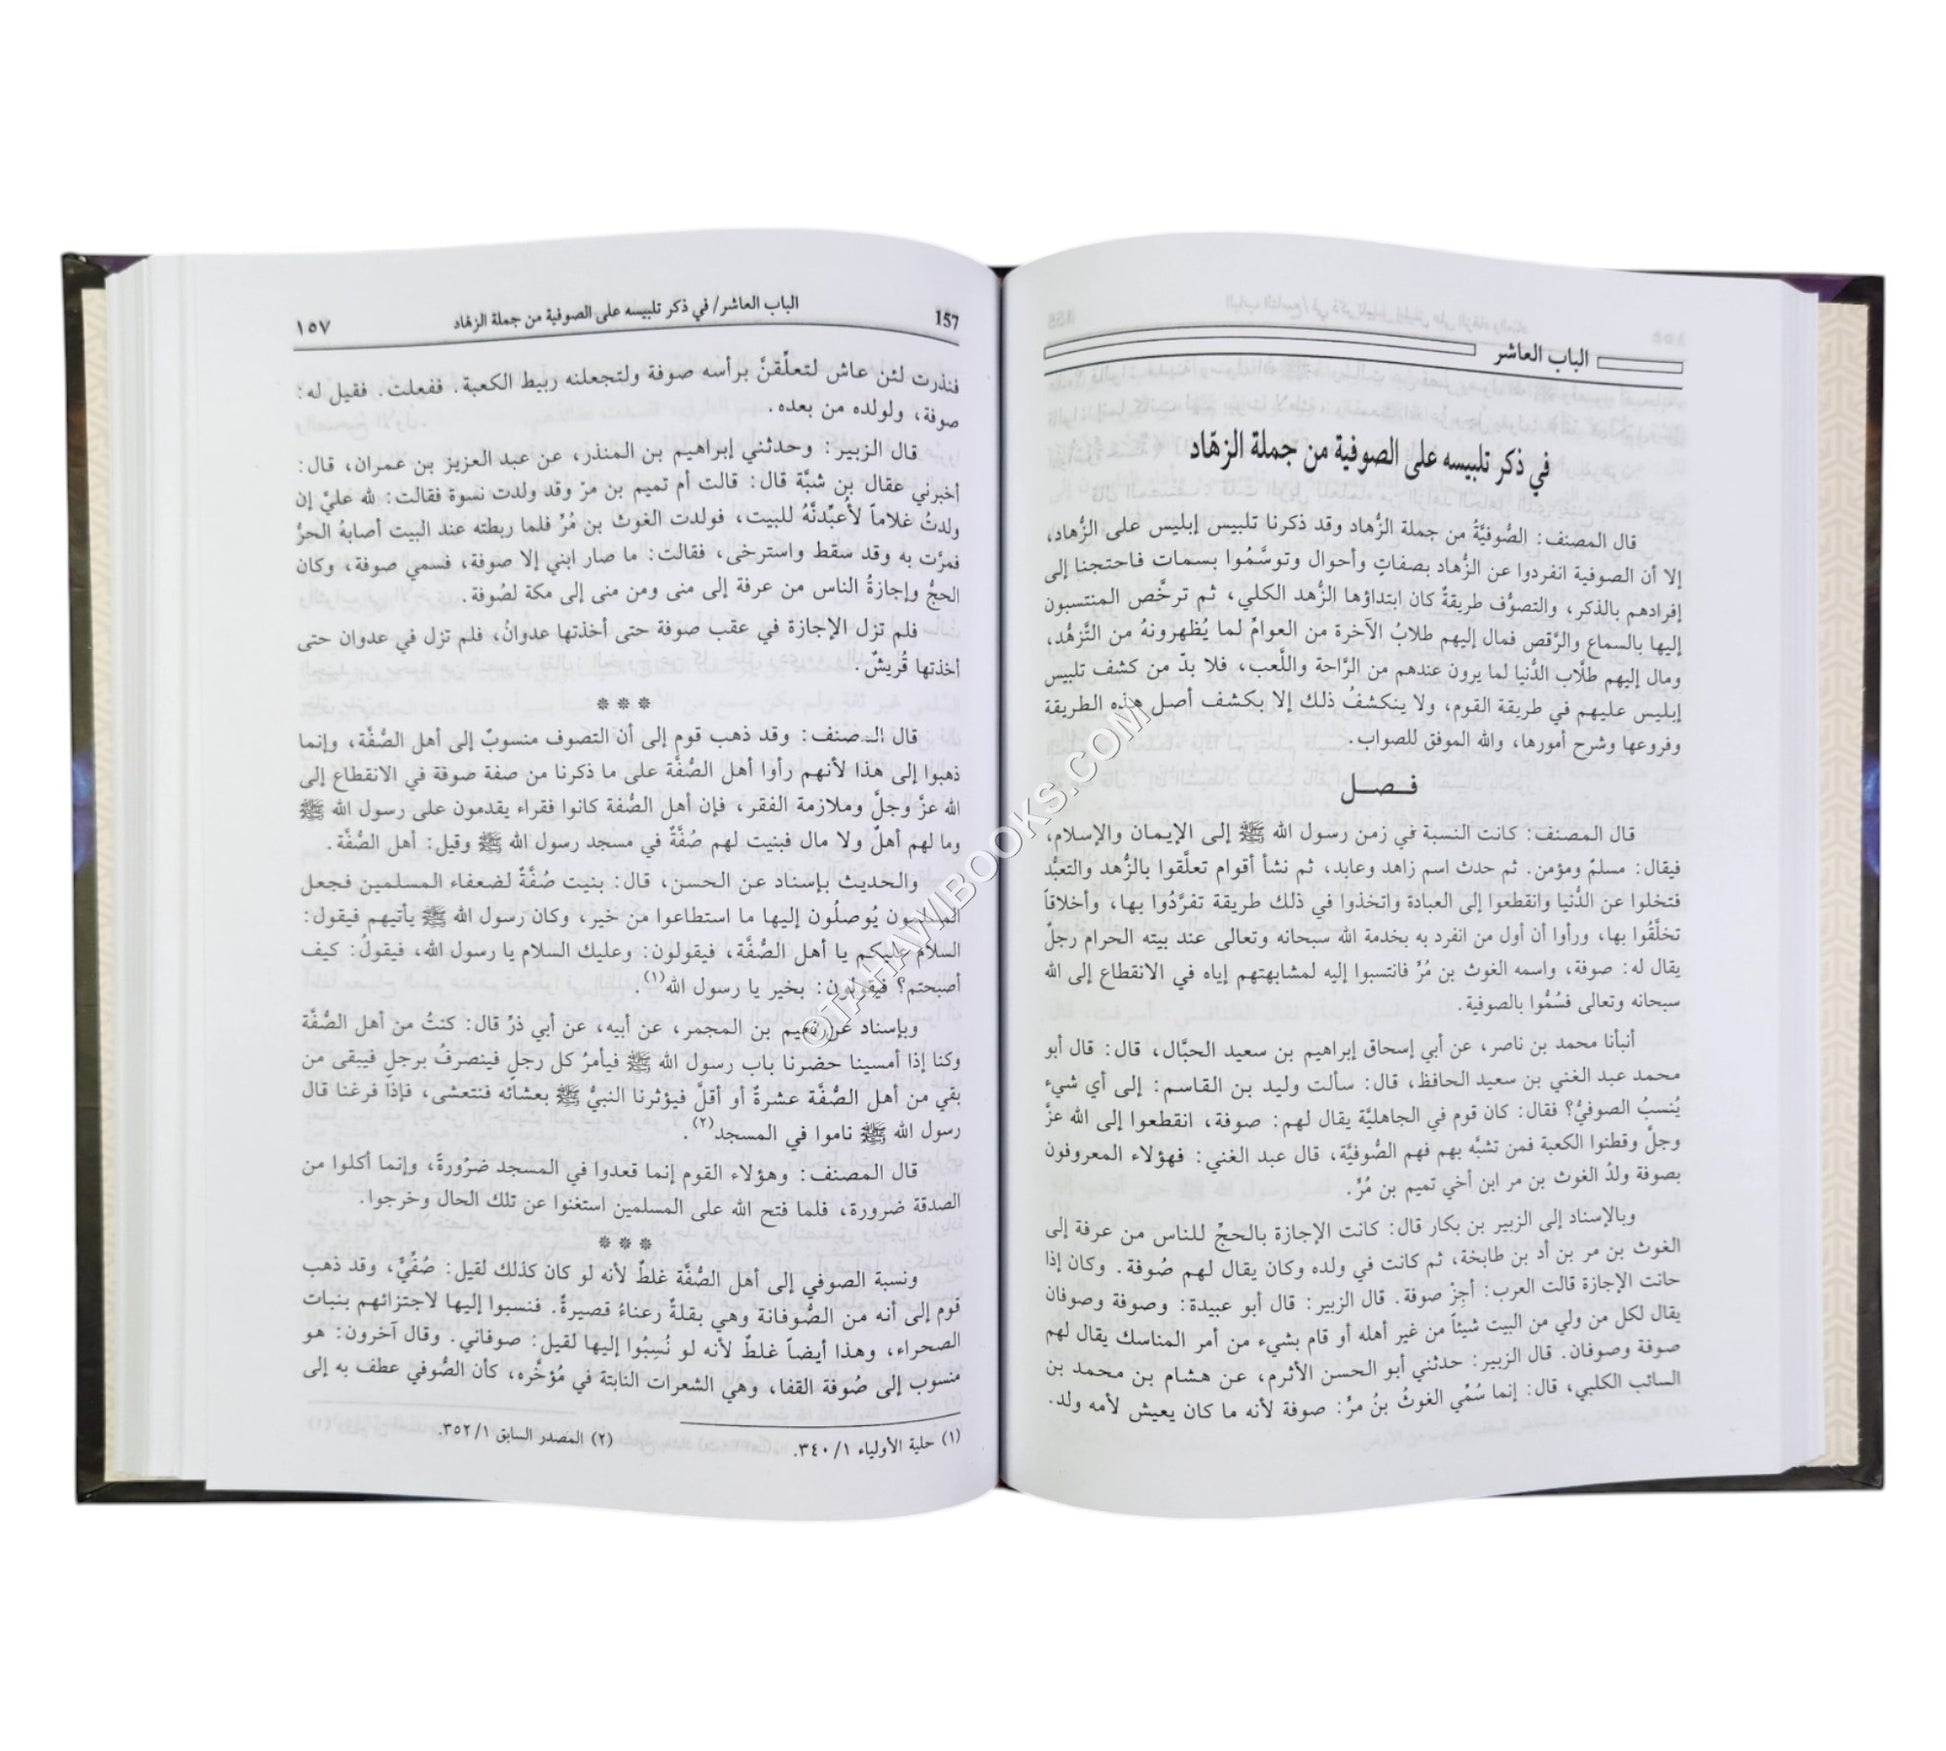 الباب العاشر
في ذكر تلبيسه على الصوفية من جملة الزهّاد
قال المصنف: الصُّوفيَّةُ من جملة الزُّهاد وقد ذكرنا تلبيس إبليس على الزُّهاد،
إلا أن الصوفية انفردوا عن الزُّهاد بصفاتٍ وأحوال وتوسَّمُوا بسمات فاحتجنا إلى
إفرادهم بالذكر، والتصوُّف طريقةٌ كان ابتداؤها الزُّهد الكلي، ثم ترخَّص المنتسبون
إليها بالسماع والرَّقص فمال إليهم طلابُ الآخرة من العوامِّ لما يُظهرونهُ من التَّزهُّد،
ومال إليهم طلَّاب الدُّنيا لما يرون عندهم من الرَّاحة واللَّعب، فلا بدّ من كشف تلبيس
إبليس عليهم في طريقة القوم، ولا ينكشفُ ذلك إلا بكشف أصل هذه الطريقة
وفروعها وشرح أمورها، والله الموفق للصواب.
فـصـل
قال المصنف: كانت النسبة في زمن رسول الله ﷺ إلى الإيمان والإسلام،
فيقال: مسلمٌ ومؤمن. ثم حدث اسم زاهد وعابد، ثم نشأ أقوام تعلَّقوا بالزُّهد والتعبُّد
فتخلوا عن الدُّنيا وانقطعوا إلى العبادة واتخذوا في ذلك طريقة تفرَّدُوا بها، وأخلاقاً
تخلَّقُوا بها، ورأوا أن أول من انفرد به بخدمة الله سبحانه وتعالى عند بيته الحرام رجلٌ
يقال له: صوفة، واسمه الغوث بن مُرّ فانتسبوا إليه لمشابهتهم إياه في الانقطاع إلى الله
سبحانه وتعالى فسُمُّوا بالصوفية.
أنبأنا محمد بن ناصر، عن أبي إسحاق إبراهيم بن سعيد الحبَّال، قال: قال أبو
محمد عبد الغني بن سعيد الحافظ، قال: سألت وليد بن القاسم: إلى أي شيء
يُنسبُ الصوفيُّ؟ فقال: كان قوم في الجاهليَّة يقال لهم: صوفة، انقطعوا إلى الله عزَّ
وجلَّ وقطنوا الكعبة فمن تشبَّه بهم فهم الصُّوفيَّة، قال عبد الغني: فهؤلاء المعروفون
بصوفة ولدُ الغوث بن مر ابن أخي تميم بن مُرّ.
وبالإسناد إلى الزبير بن بكار قال: كانت الإجازة بالحجِّ للناس من عرفة إلى
الغوث بن مر بن أد بن طابخة، ثم كانت في ولده وكان يقال لهم صُوفة. وكان إذا
حانت الإجازة قالت العرب: أجِزْ صوفة. قال الزبير: قال أبو عبيدة: وصوفة وصوفان
يقال لكل من ولي من البيت شيئاً من غير أهله أو قام بشيء من أمر المناسك يقال لهم
صوفة وصوفان. قال الزبير: حدثني أبو الحسن الأثرم، عن هشام بن محمد بن
السائب الكلبي، قال: إنما سُمِّي الغوثُ بنُ مرٍّ: صوفة لأنه ما كان يعيش لأمه ولد.
157 الباب العاشر/ في ذكر تلبيسه على الصوفية من جملة الزهّاد ١٥٧
فنذرت لئن عاش لتعلِّقنَّ برأسه صوفة ولتجعلنه ربيط الكعبة. ففعلت. فقيل له:
صوفة، ولولده من بعده.
قال الزبير: وحدثني إبراهيم بن المنذر، عن عبد العزيز بن عمران، قال:
أخبرني عقال بن شبَّة قال: قالت أم تميم بن مرّ وقد ولدت نسوة فقالت: لله عليَّ إن
ولدتُ غلاماً لأُعبِّدنَّهُ للبيت، فولدت الغوث بن مُرٍّ فلما ربطته عند البيت أصابهُ الحرُّ
فمرَّت به وقد سقط واسترخى، فقالت: ما صار ابني إلا صوفة، فسمي صوفة، وكان
الحجُّ وإجازةُ الناس من عرفة إلى منى ومن منى إلى مكة لصُوفة.
فلم تزل الإجازة في عقب صوفة حتى أخذتها عدوانُ، فلم تزل في عدوان حتى
أخذتها قُريشٌ.
* * *
قال المصنف: وقد ذهب قوم إلى أن التصوف منسوبٌ إلى أهل الصُّفّة، وإنما
ذهبوا إلى هذا لأنهم رأوا أهل الصُّفَّة على ما ذكرنا من صفة صوفة في الانقطاع إلى
الله عزَّ وجلَّ وملازمة الفقر، فإن أهل الصُّفة كانوا فقراء يقدمون على رسول الله ﷺ
وما لهم أهلٌ ولا مال فبنيت لهم صُفَّةٌ في مسجد رسول الله ﷺ وقيل: أهل الصُّفَّة.
والحديث بإسناد عن الحسن، قال: بنيت صُفَّةٌ لضعفاء المسلمين فجعل
المسلمون يُوصلُون إليها ما استطاعوا من خير، وكان رسول الله ﷺ يأتيهم فيقول:
السلام عليكم يا أهل الصُّفَّة، فيقولون: وعليك السلام يا رسول الله، فيقولُ: كيف
أصبحتم؟ فيقولون: بخير يا رسول الله(١).
وبإسناد عن نعيم بن المجمر، عن أبيه، عن أبي ذرّ قال: كنتُ من أهل الصُّفَّة
وكنا إذا أمسينا حضرنا باب رسول الله ﷺ فيأمرُ كل رجلٍ فينصرفُ برجلٍ فيبقى من
بقي من أهل الصُّفَّة عشرةٌ أو أقلَّ فيؤثرنا النبيُّ ﷺ بعشائه فنتعشى، فإذا فرغنا قال
رسول الله ﷺ ناموا في المسجد(٢).
قال المصنف: وهؤلاء القوم إنما قعدوا في المسجد ضرُورةً، وإنما أكلوا من
الصدقة ضرورة، فلما فتح الله على المسلمين استغنوا عن تلك الحال وخرجوا.
* * *
ونسبة الصوفي إلى أهل الصُّفَّة غلطٌ لأنه لو كان كذلك لقيل: صُفِّيٌّ، وقد ذهب
قوم إلى أنه من الصُّوفانة وهي بقلةٌ رعناءُ قصيرةٌ. فنسبوا إليها لاجتزائهم بنبات
الصحراء، وهذا أيضاً غلطٌ لأنه لو نُسِبُوا إليها لقيل: صوفاني. وقال آخرون: هو
منسوب إلى صُوفة القفا، وهي الشعرات النابتة في مُؤخَّره، كأن الصُّوفي عطف به إلى
(١) حلية الأولياء ٣٤٠/١. (٢) المصدر السابق ٣٥٢/١.
©TAHAWIBOOKS.COM